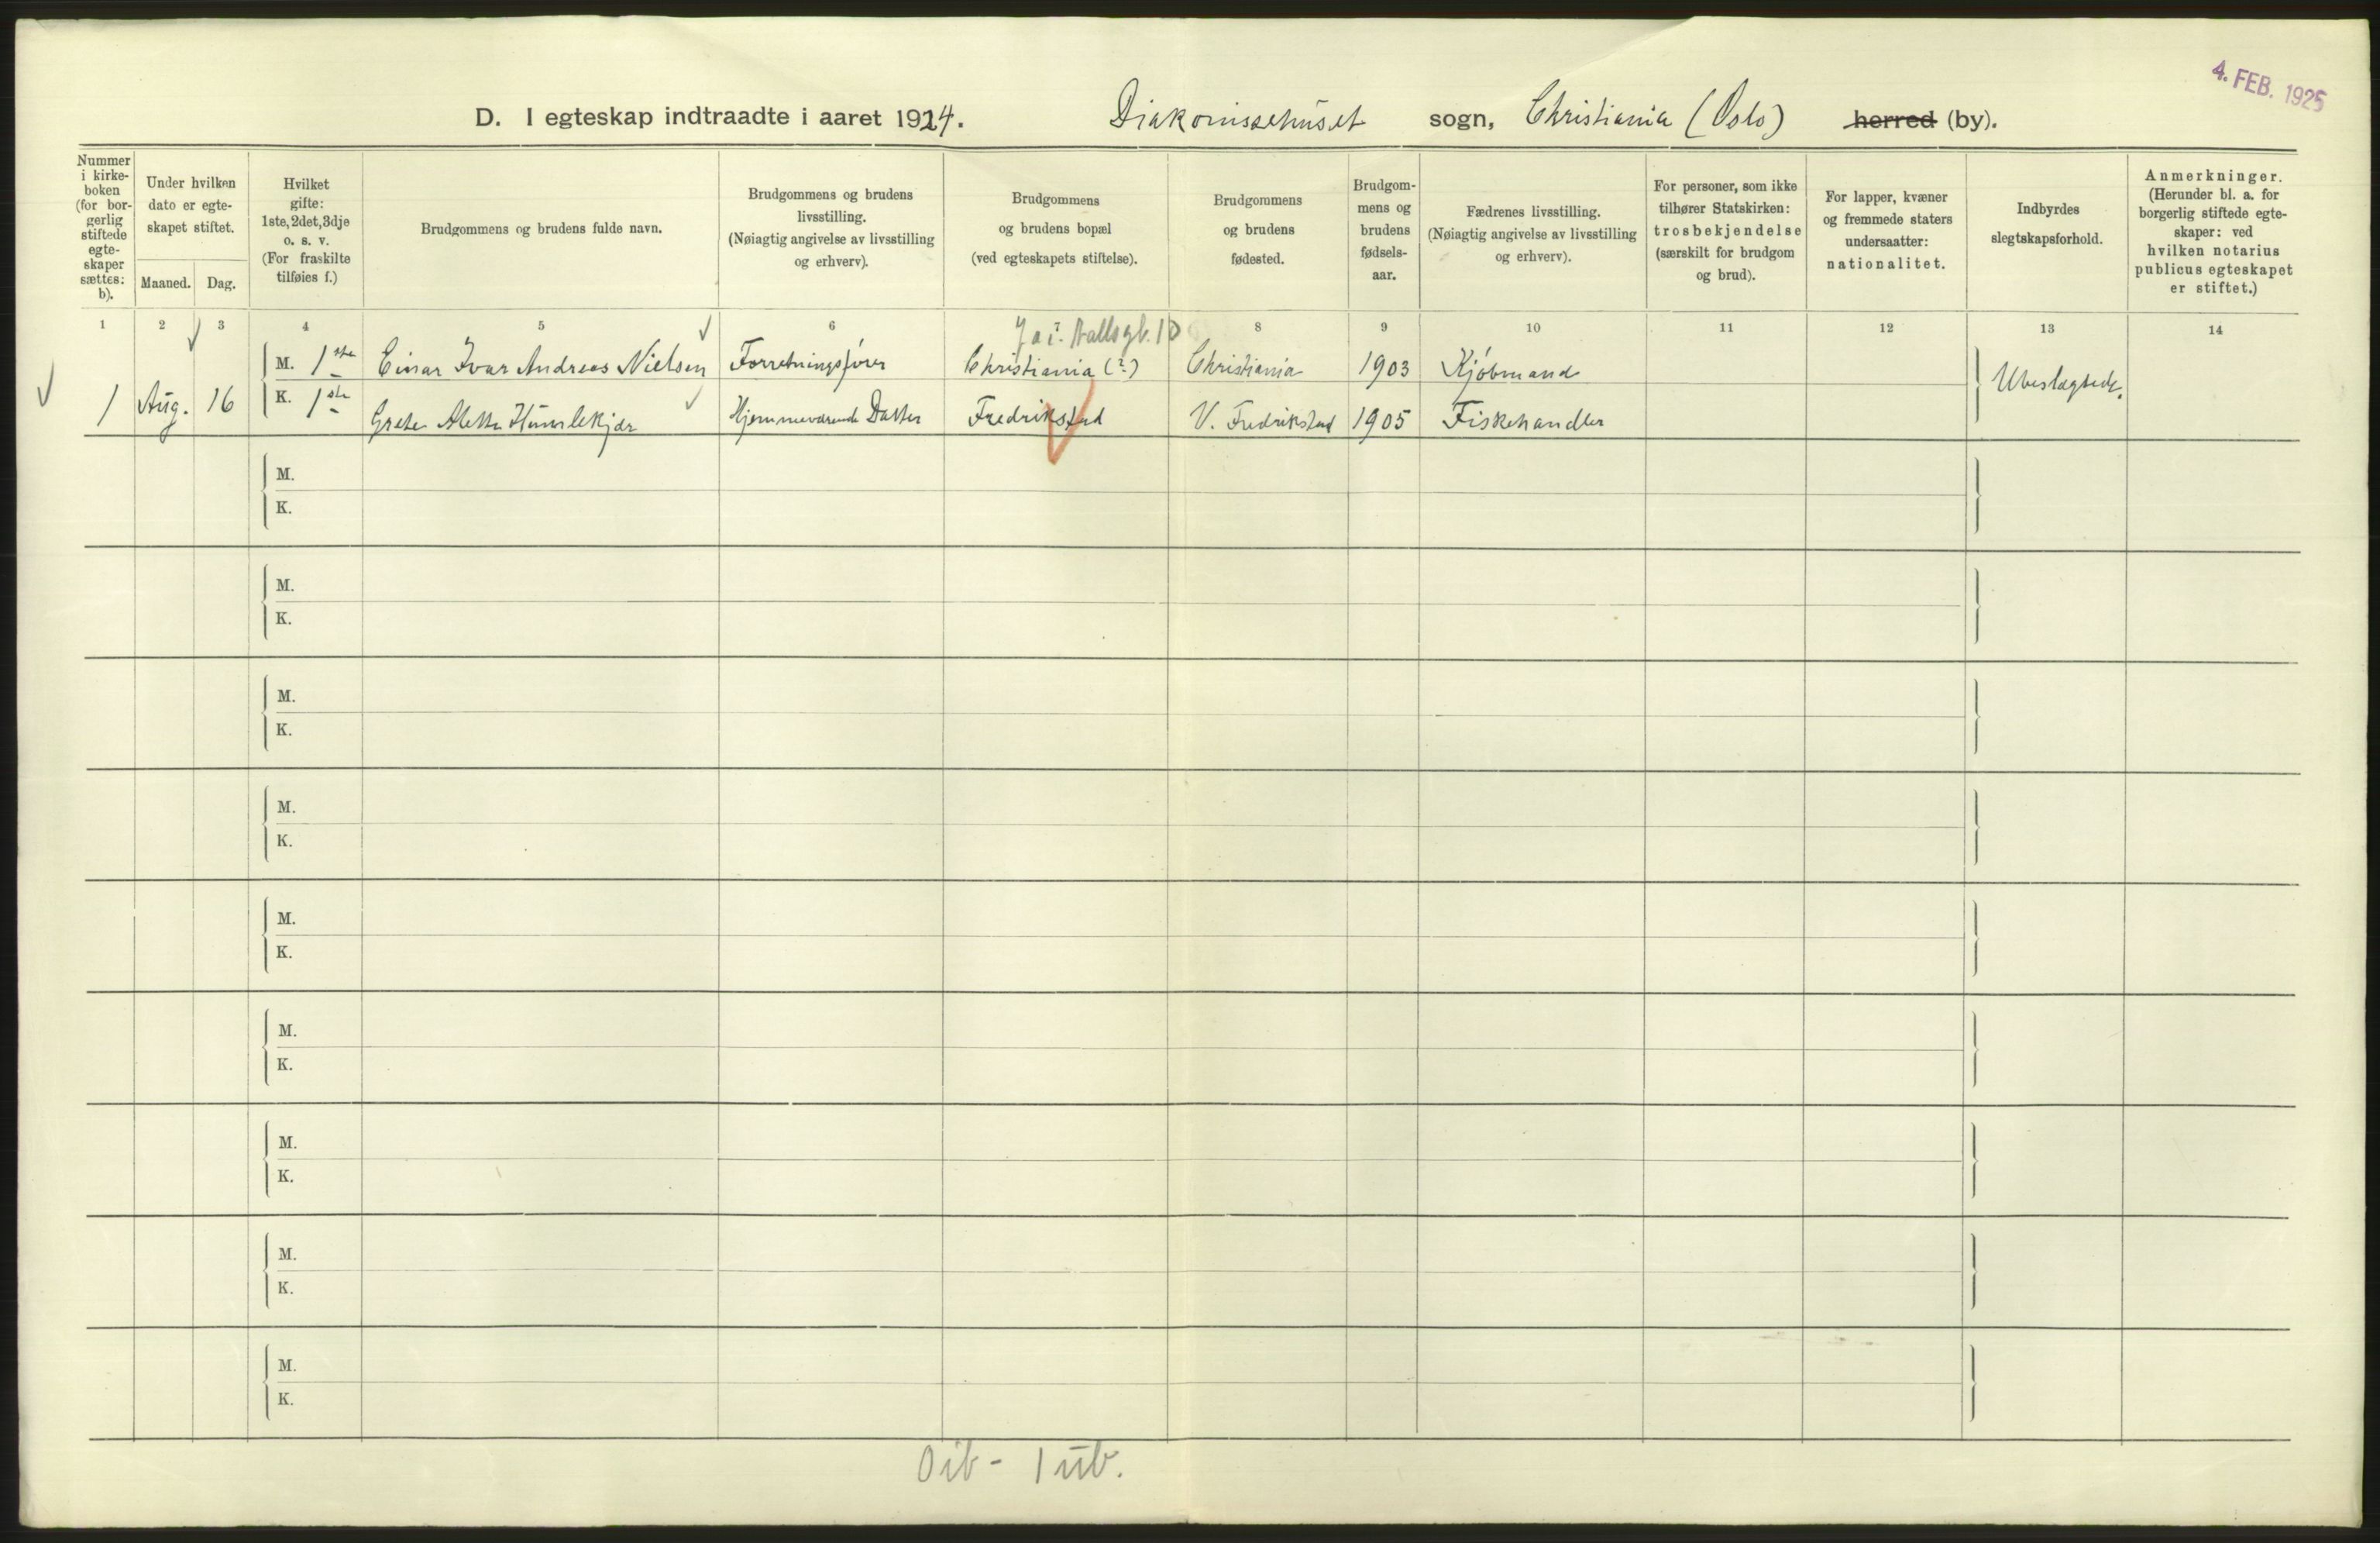 4. FEB. 1925
D. I egteskap indtraadte i aaret 1924. Diakonissehuset sogn, Christiania (Oslo) herred (by).
Nummer i kirke-boken (for bor-gerlig stiftede egte-skaper sættes: b).
Under hvilken dato er egte-skapet stiftet.
Maaned. Dag.
Hvilket gifte: 1ste, 2det, 3dje o. s. v. (For fraskilte tilføies f.)
Brudgommens og brudens fulde navn.
Brudgommens og brudens livsstilling. (Nøiagtig angivelse av livsstilling og erhverv).
Brudgommens og brudens bopæl (ved egteskapets stiftelse).
Brudgommens og brudens fødested.
Brudgom-mens og brudens fødsels-aar.
Fædrenes livsstilling. (Nøiagtig angivelse av livsstilling og erhverv).
For personer, som ikke tilhører Statskirken: trosbekjendelse (særskilt for brudgom og brud).
For lapper, kvæner og fremmede staters undersaatter: nationalitet.
Indbyrdes slegtskapsforhold.
Anmerkninger. (Herunder bl. a. for borgerlig stiftede egte-skaper: ved hvilken notarius publicus egteskapet er stiftet.)
1 2 3 4 5 6 7 8 9 10 11 12 13 14
M. 1ste Einar Ivar Andreas Nielsen Forretningsfører Christiania (?) Christiania 1903 Kjöbmand Ubeslægtede.
1 Aug. 16 K. 1ste Grete Alette Humlekjær Hjemmeværende Datter Fredrikstad V. Fredrikstad 1905 Fiskehandler
M.
K.
M.
K.
M.
K.
M.
K.
M.
K.
M.
K.
M.
K.
M.
K.
M.
K.
0 ib - 1 ub.